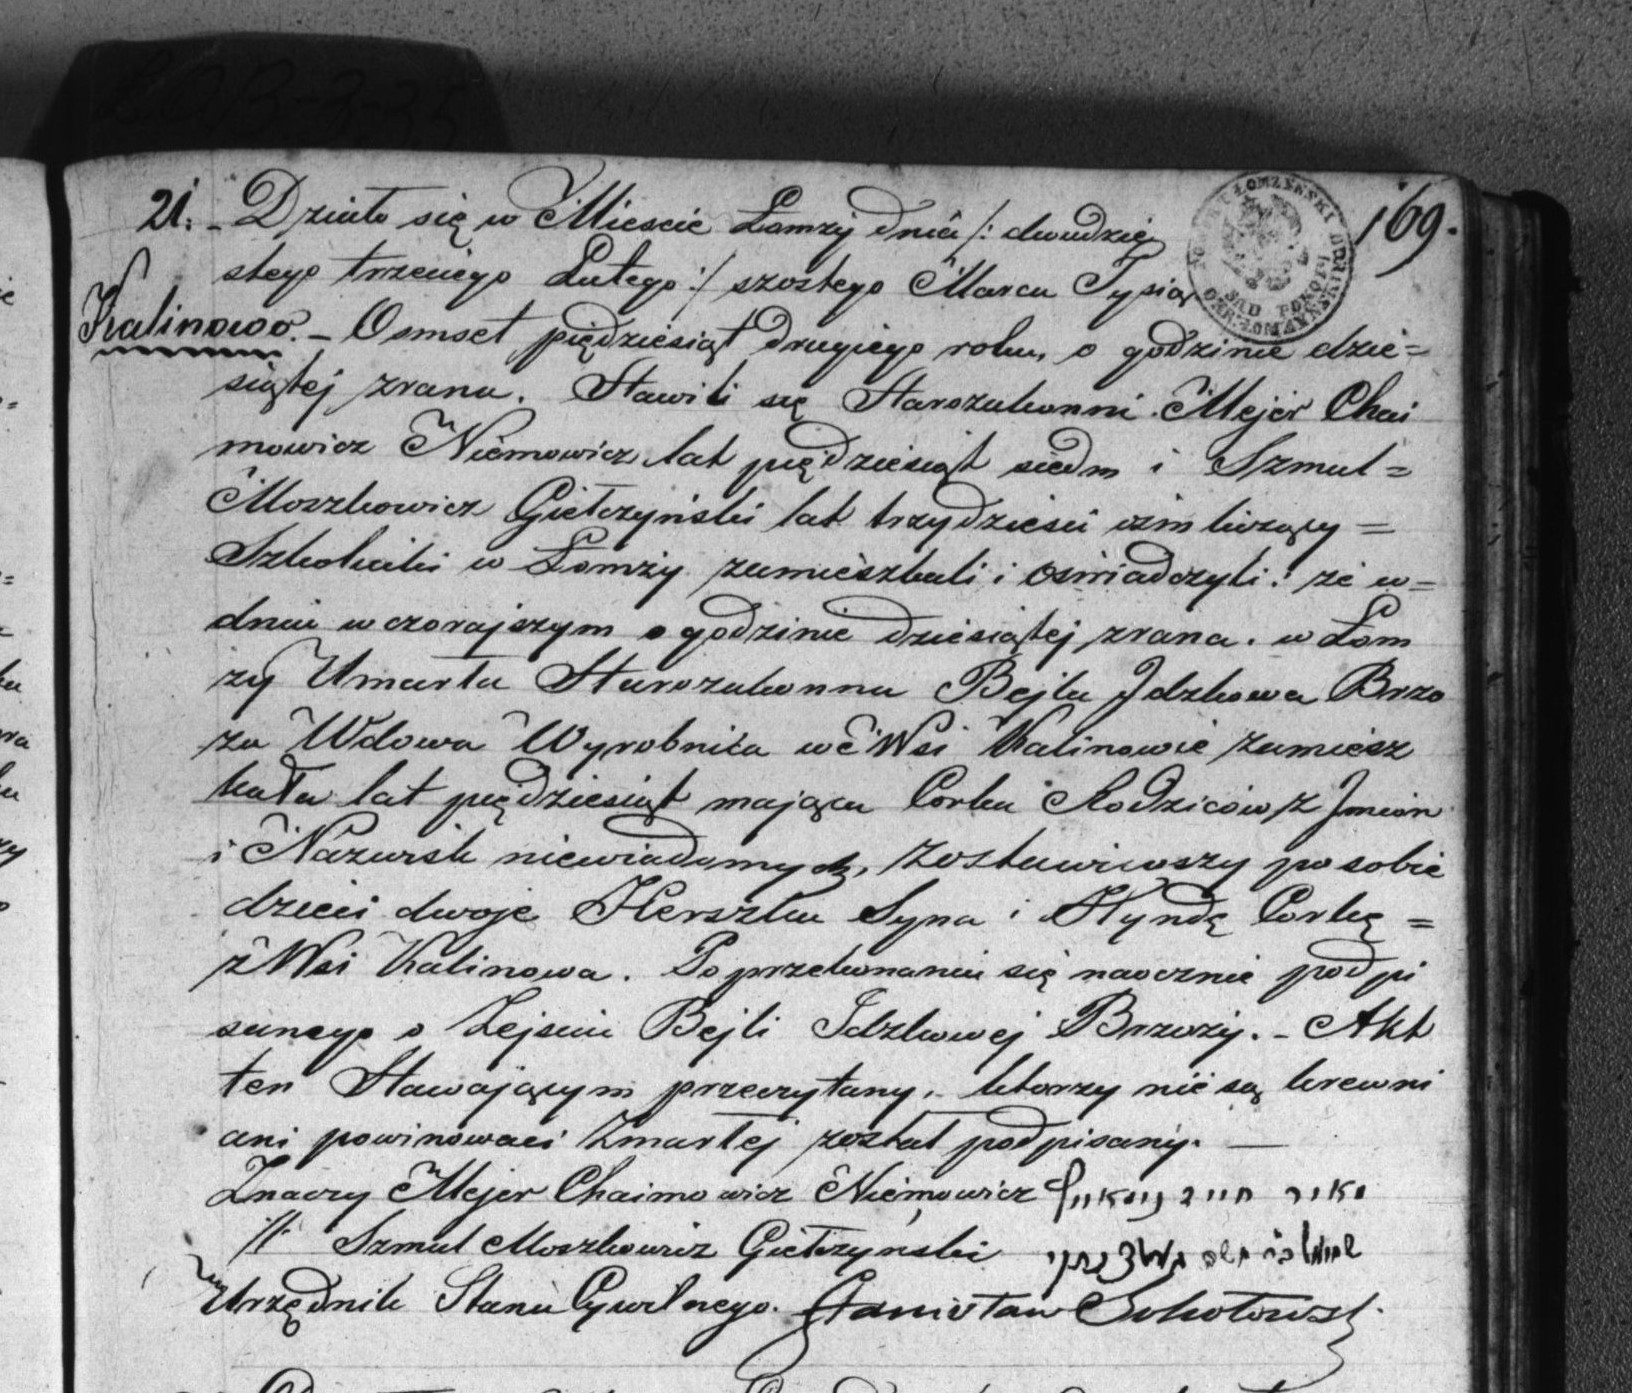 169.
21. Działo się w Mieście Łomży dnia /: dwudzie
stego trzeciego Lutego :/ szostego Marca Tysiąc
Kalinowo. – Osmset pięćdziesiąt drugiego roku, o godzinie dzie=
siątej zrana. Stawili się Starozakonni Mejer Chai
mowicz Niemowicz lat pięćdziesiąt siedm i Szmul=
Moszkowicz Giełczyński lat trzydzieści ośm liczący =
Szkolniki w Łomży zamieszkali i oświadczyli: że w=
dniu wczorajszym o godzinie dziesiątej zrana. w Łom
ży Umarła Starozakonna Bejla Jdzkowa Brzo
za Wdowa Wyrobnica we Wsi Kalinowie zamiesz
kała lat pięćdziesiąt mająca Corka Rodziców z Jmion
i Nazwisk niewiadomych, zostawiwszy po sobie
dzieci dwoje Herszka Syna i Hyndę Corkę =
z Wsi Kalinowa. Po przekonaniu się naocznie podpi
sanego o Zejściu Bejli Idzkowej Brzozy. – Akt
ten Stawającym przeczytany, ktorzy nie są krewni
ani powinowaci Zmarłej został podpisany. —
Znaczy Mejer Chaimowicz Niemowicz מאיר חיים
// Szmul Moszkowicz Giełczyński
Urzędnik Stanu Cywilnego. Stanisław Sokołowski